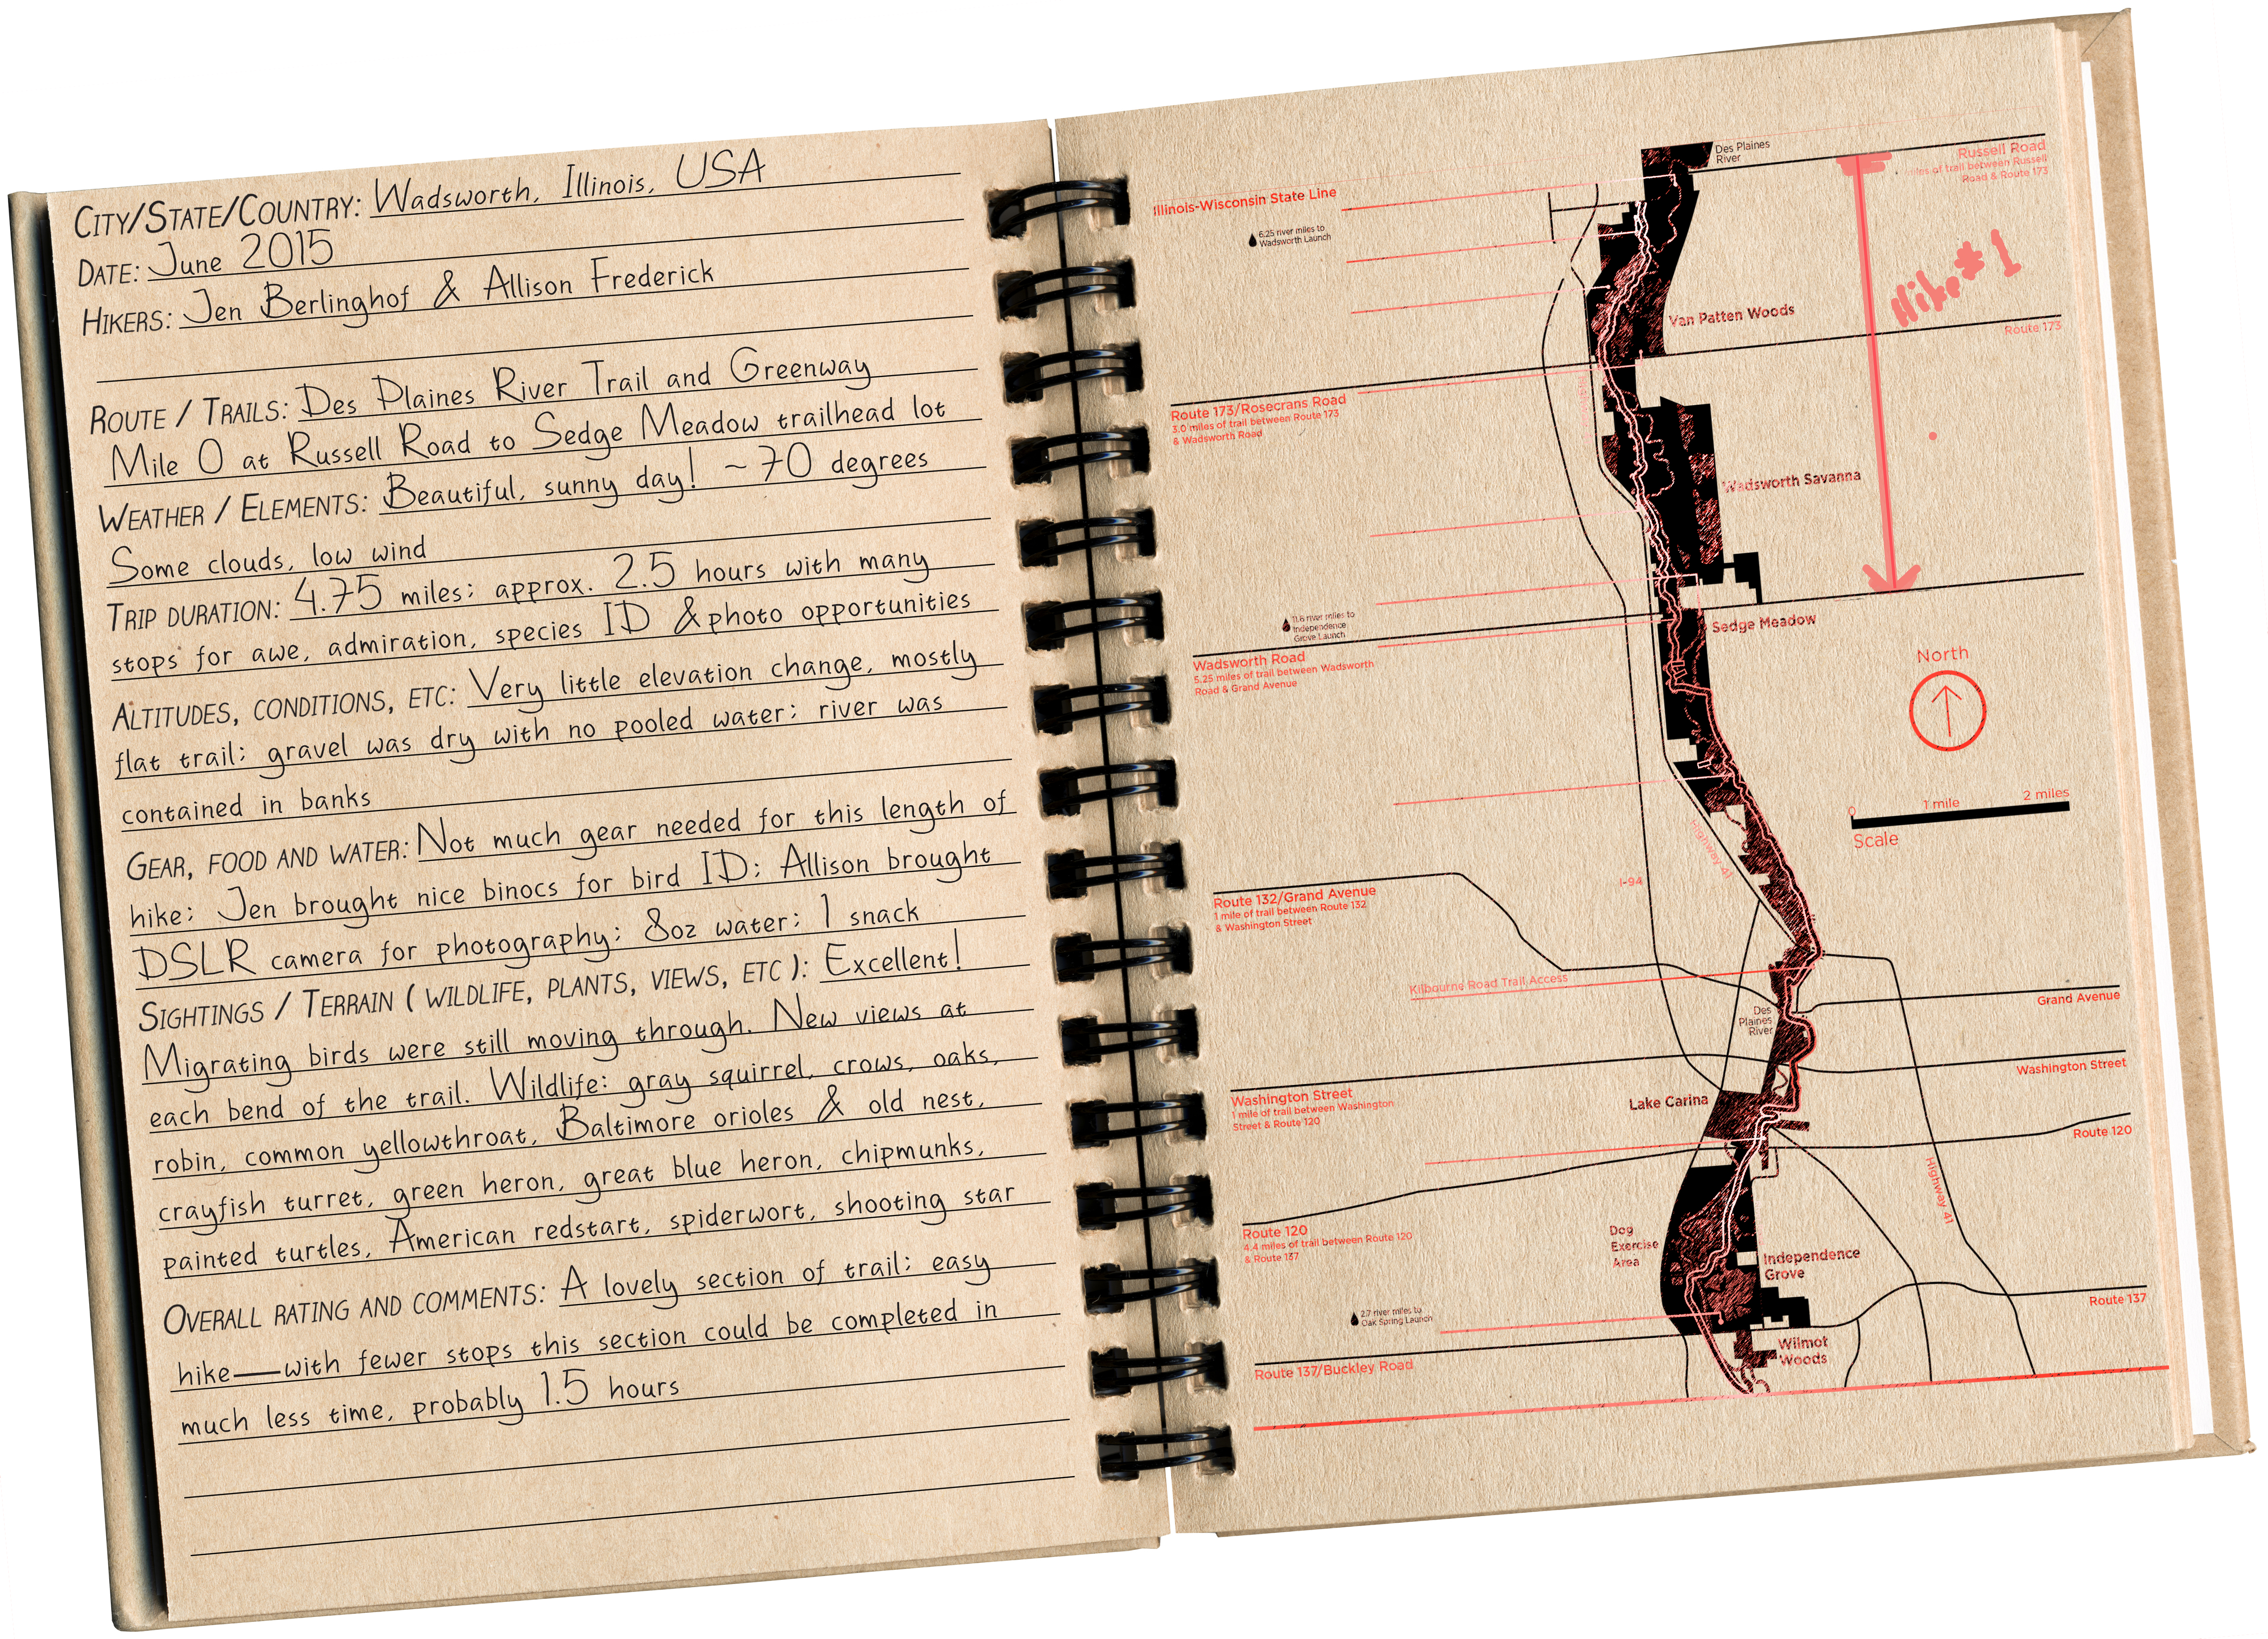 CITY/STATE/COUNTRY: Wadsworth, Illinois, USA
DATE: June 2015
HIKERS: Jen Berlinghof & Allison Frederick
ROUTE / TRAILS: Des Plaines River Trail and Greenway
Mile 0 at Russell Road to Sedge Meadow trailhead lot
WEATHER / ELEMENTS: Beautiful, sunny day! ~70 degrees
Some clouds, low wind
TRIP DURATION: 4.75 miles; approx. 2.5 hours with many
stops for awe, admiration, species ID & photo opportunities
ALTITUDES, CONDITIONS, ETC: Very little elevation change, mostly
flat trail; gravel was dry with no pooled water; river was
contained in banks
GEAR, FOOD AND WATER: Not much gear needed for this length of
hike; Jen brought nice binocs for bird ID; Allison brought
DSLR camera for photography; 8oz water; 1 snack
SIGHTINGS / TERRAIN ( WILDLIFE, PLANTS, VIEWS, ETC ): Excellent!
Migrating birds were still moving through. New views at
each bend of the trail. Wildlife: gray squirrel, crows, oaks,
robin, common yellowthroat, Baltimore orioles & old nest,
crayfish turret, green heron, great blue heron, chipmunks,
painted turtles, American redstart, spiderwort, shooting star
OVERALL RATING AND COMMENTS: A lovely section of trail; easy
hike—with fewer stops this section could be completed in
much less time, probably 1.5 hours
Des Plaines
River
Russell Road
miles of trail between Russell
Road & Route 173
Illinois-Wisconsin State Line
6.25 river miles to
Wadsworth Launch
Hike #1
Van Patten Woods
Route 173
Route 173/Rosecrans Road
3.0 miles of trail between Route 173
& Wadsworth Road
Wadsworth Savanna
11.6 river miles to
Independence
Grove Launch
Sedge Meadow
Wadsworth Road
5.25 miles of trail between Wadsworth
Road & Grand Avenue
North
0 1 mile 2 miles
Scale
Highway 41
I-94
Route 132/Grand Avenue
1 mile of trail between Route 132
& Washington Street
Kilbourne Road Trail Access
Des
Plaines
River
Grand Avenue
Washington Street
Washington Street
1 mile of trail between Washington
Street & Route 120
Lake Carina
Route 120
Highway 41
Route 120
4.4 miles of trail between Route 120
& Route 137
Dog
Exercise
Area
Independence
Grove
Route 137
2.7 river miles to
Oak Spring Launch
Wilmot
Woods
Route 137/Buckley Road